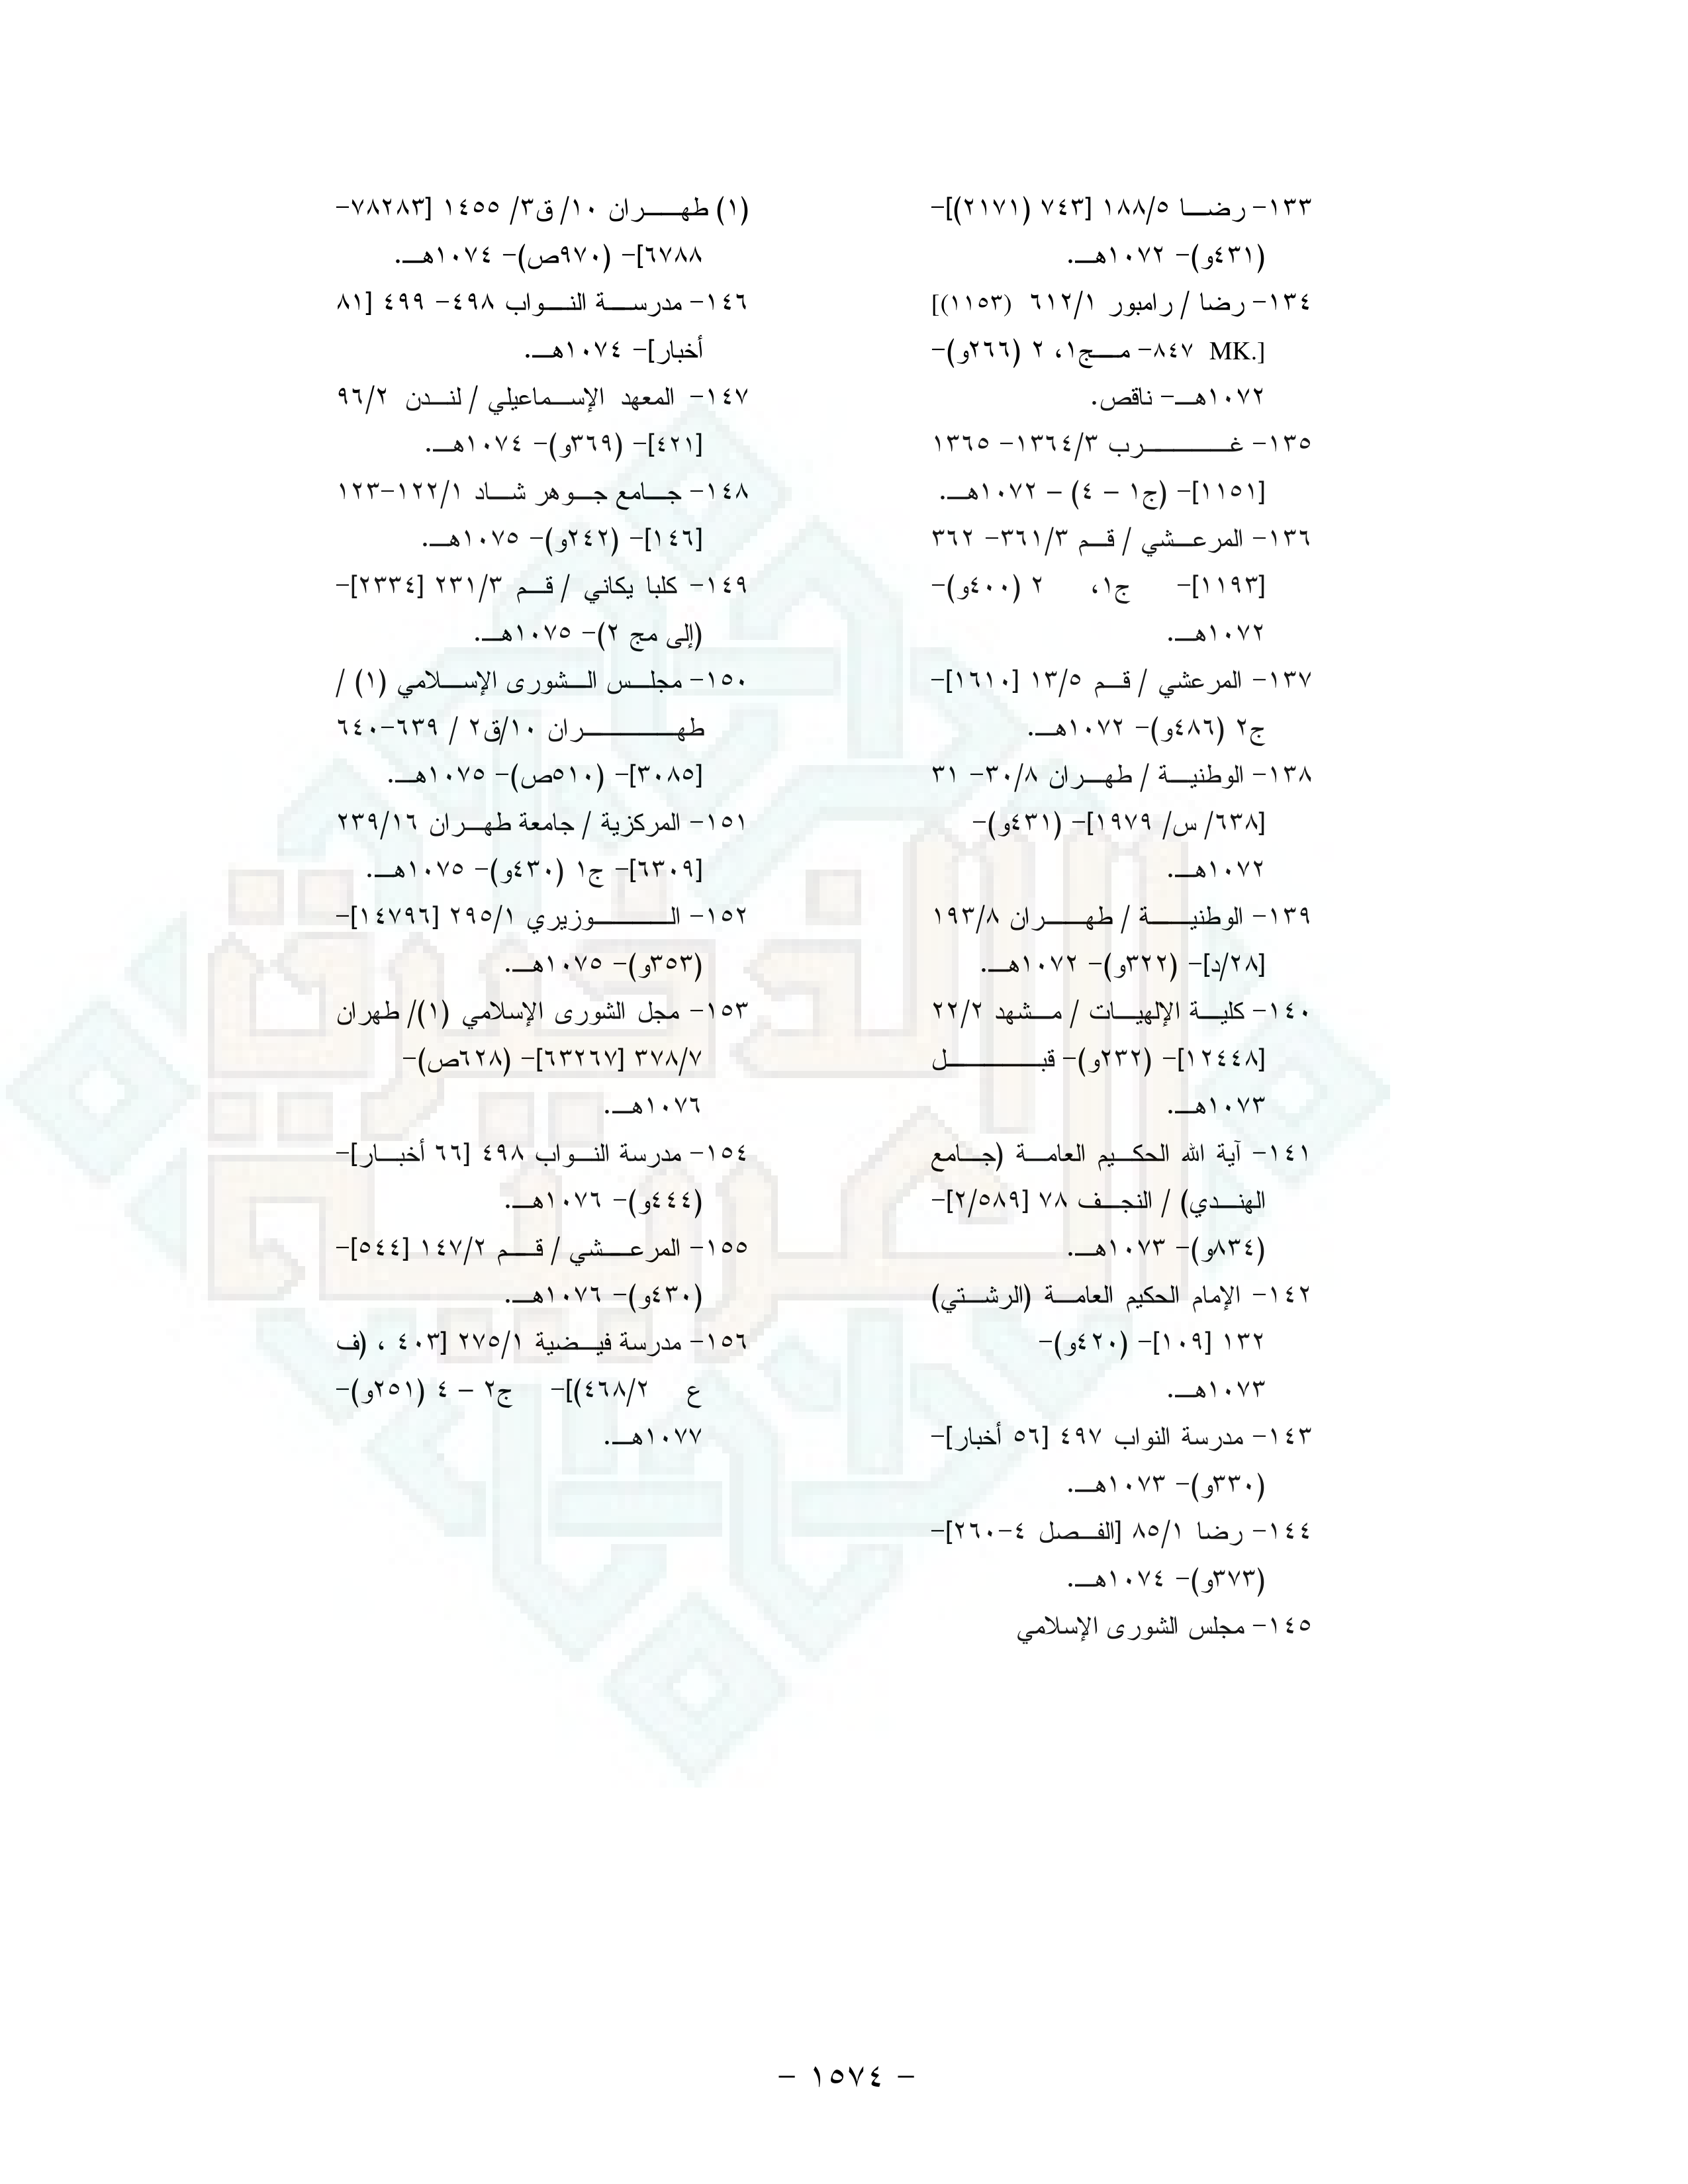 ١٣٣- رضا ١٨٨/٥ [٧٤٣ (٢١٧١)]-
(٤٣١و)- ١٠٧٢هـ.
١٣٤- رضا / رامبور ٦١٢/١ (١١٥٣)]
[.MK ٨٤٧- مج١، ٢ (٢٦٦و)-
١٠٧٢هـ- ناقص.
١٣٥- غرب ١٣٦٤/٣- ١٣٦٥
[١١٥١]- (ج١ - ٤) - ١٠٧٢هـ.
١٣٦- المرعشي / قم ٣٦١/٣- ٣٦٢
[١١٩٣]- ج١، ٢ (٤٠٠و)-
١٠٧٢هـ.
١٣٧- المرعشي / قم ١٣/٥ [١٦١٠]-
ج٢ (٤٨٦و)- ١٠٧٢هـ.
١٣٨- الوطنية / طهران ٣٠/٨- ٣١
[٦٣٨/ س/ ١٩٧٩]- (٤٣١و)-
١٠٧٢هـ.
١٣٩- الوطنية / طهران ١٩٣/٨
[٢٨/د]- (٣٢٢و)- ١٠٧٢هـ.
١٤٠- كلية الإلهيات / مشهد ٢٢/٢
[١٢٤٤٨]- (٢٣٢و)- قبل
١٠٧٣هـ.
١٤١- آية الله الحكيم العامة (جامع
الهندي) / النجف ٧٨ [٢/٥٨٩]-
(٨٣٤و)- ١٠٧٣هـ.
١٤٢- الإمام الحكيم العامة (الرشتي)
١٣٢ [١٠٩]- (٤٢٠و)-
١٠٧٣هـ.
١٤٣- مدرسة النواب ٤٩٧ [٥٦ أخبار]-
(٣٣٠و)- ١٠٧٣هـ.
١٤٤- رضا ٨٥/١ [الفصل ٤-٢٦٠]-
(٣٧٣و)- ١٠٧٤هـ.
١٤٥- مجلس الشورى الإسلامي
(١) طهران ١٠/ ق٣/ ١٤٥٥ [٧٨٢٨٣-
٦٧٨٨]- (٩٧٠ص)- ١٠٧٤هـ.
١٤٦- مدرسة النواب ٤٩٨- ٤٩٩ [٨١
أخبار]- ١٠٧٤هـ.
١٤٧- المعهد الإسماعيلي / لندن ٩٦/٢
[٤٢١]- (٣٦٩و)- ١٠٧٤هـ.
١٤٨- جامع جوهر شاد ١٢٢/١-١٢٣
[١٤٦]- (٢٤٢و)- ١٠٧٥هـ.
١٤٩- كلبا يكاني / قم ٢٣١/٣ [٢٣٣٤]-
(إلى مج ٢)- ١٠٧٥هـ.
١٥٠- مجلس الشورى الإسلامي (١) /
طهران ١٠/ق٢ / ٦٣٩-٦٤٠
[٣٠٨٥]- (٥١٠ص)- ١٠٧٥هـ.
١٥١- المركزية / جامعة طهران ٢٣٩/١٦
[٦٣٠٩]- ج١ (٤٣٠و)- ١٠٧٥هـ.
١٥٢- الوزيري ٢٩٥/١ [١٤٧٩٦]-
(٣٥٣و)- ١٠٧٥هـ.
١٥٣- مجل الشورى الإسلامي (١)/ طهران
٣٧٨/٧ [٦٣٢٦٧]- (٦٢٨ص)-
١٠٧٦هـ.
١٥٤- مدرسة النواب ٤٩٨ [٦٦ أخبار]-
(٤٤٤و)- ١٠٧٦هـ.
١٥٥- المرعشي / قم ١٤٧/٢ [٥٤٤]-
(٤٣٠و)- ١٠٧٦هـ.
١٥٦- مدرسة فيضية ٢٧٥/١ [٤٠٣ ، (ف
ع ٤٦٨/٢)]- ج٢ - ٤ (٢٥١و)-
١٠٧٧هـ.
- ١٥٧٤ -